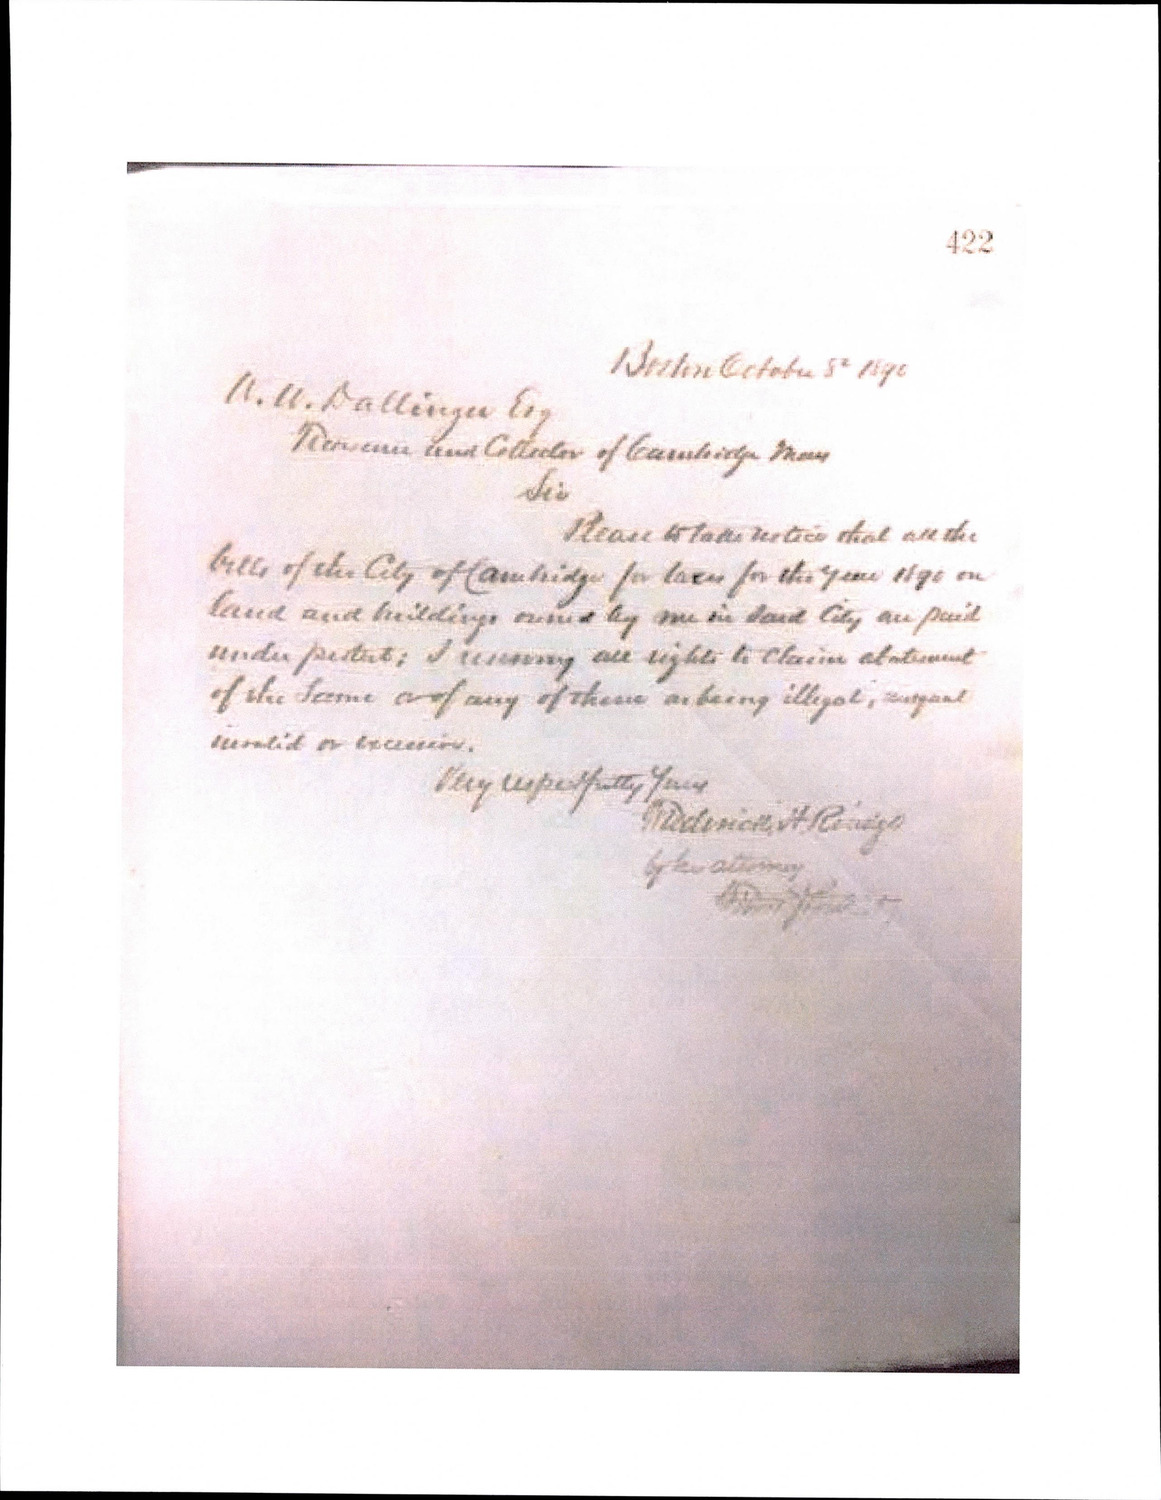 422
Boston October 8th 1890
W. W. Dallinger Esq
Treasurer and Collector of Cambridge Mass
Sir
Please to take notice that all the
bills of the City of Cambridge for taxes for the year 1890 on
land and buildings owned by me in said City are paid
under protest; I reserving all rights to claim abatement
of the same or of any of them as being illegal, unequal
invalid or excessive.
Very respectfully Yours
Frederick H Rindge
by his attorney